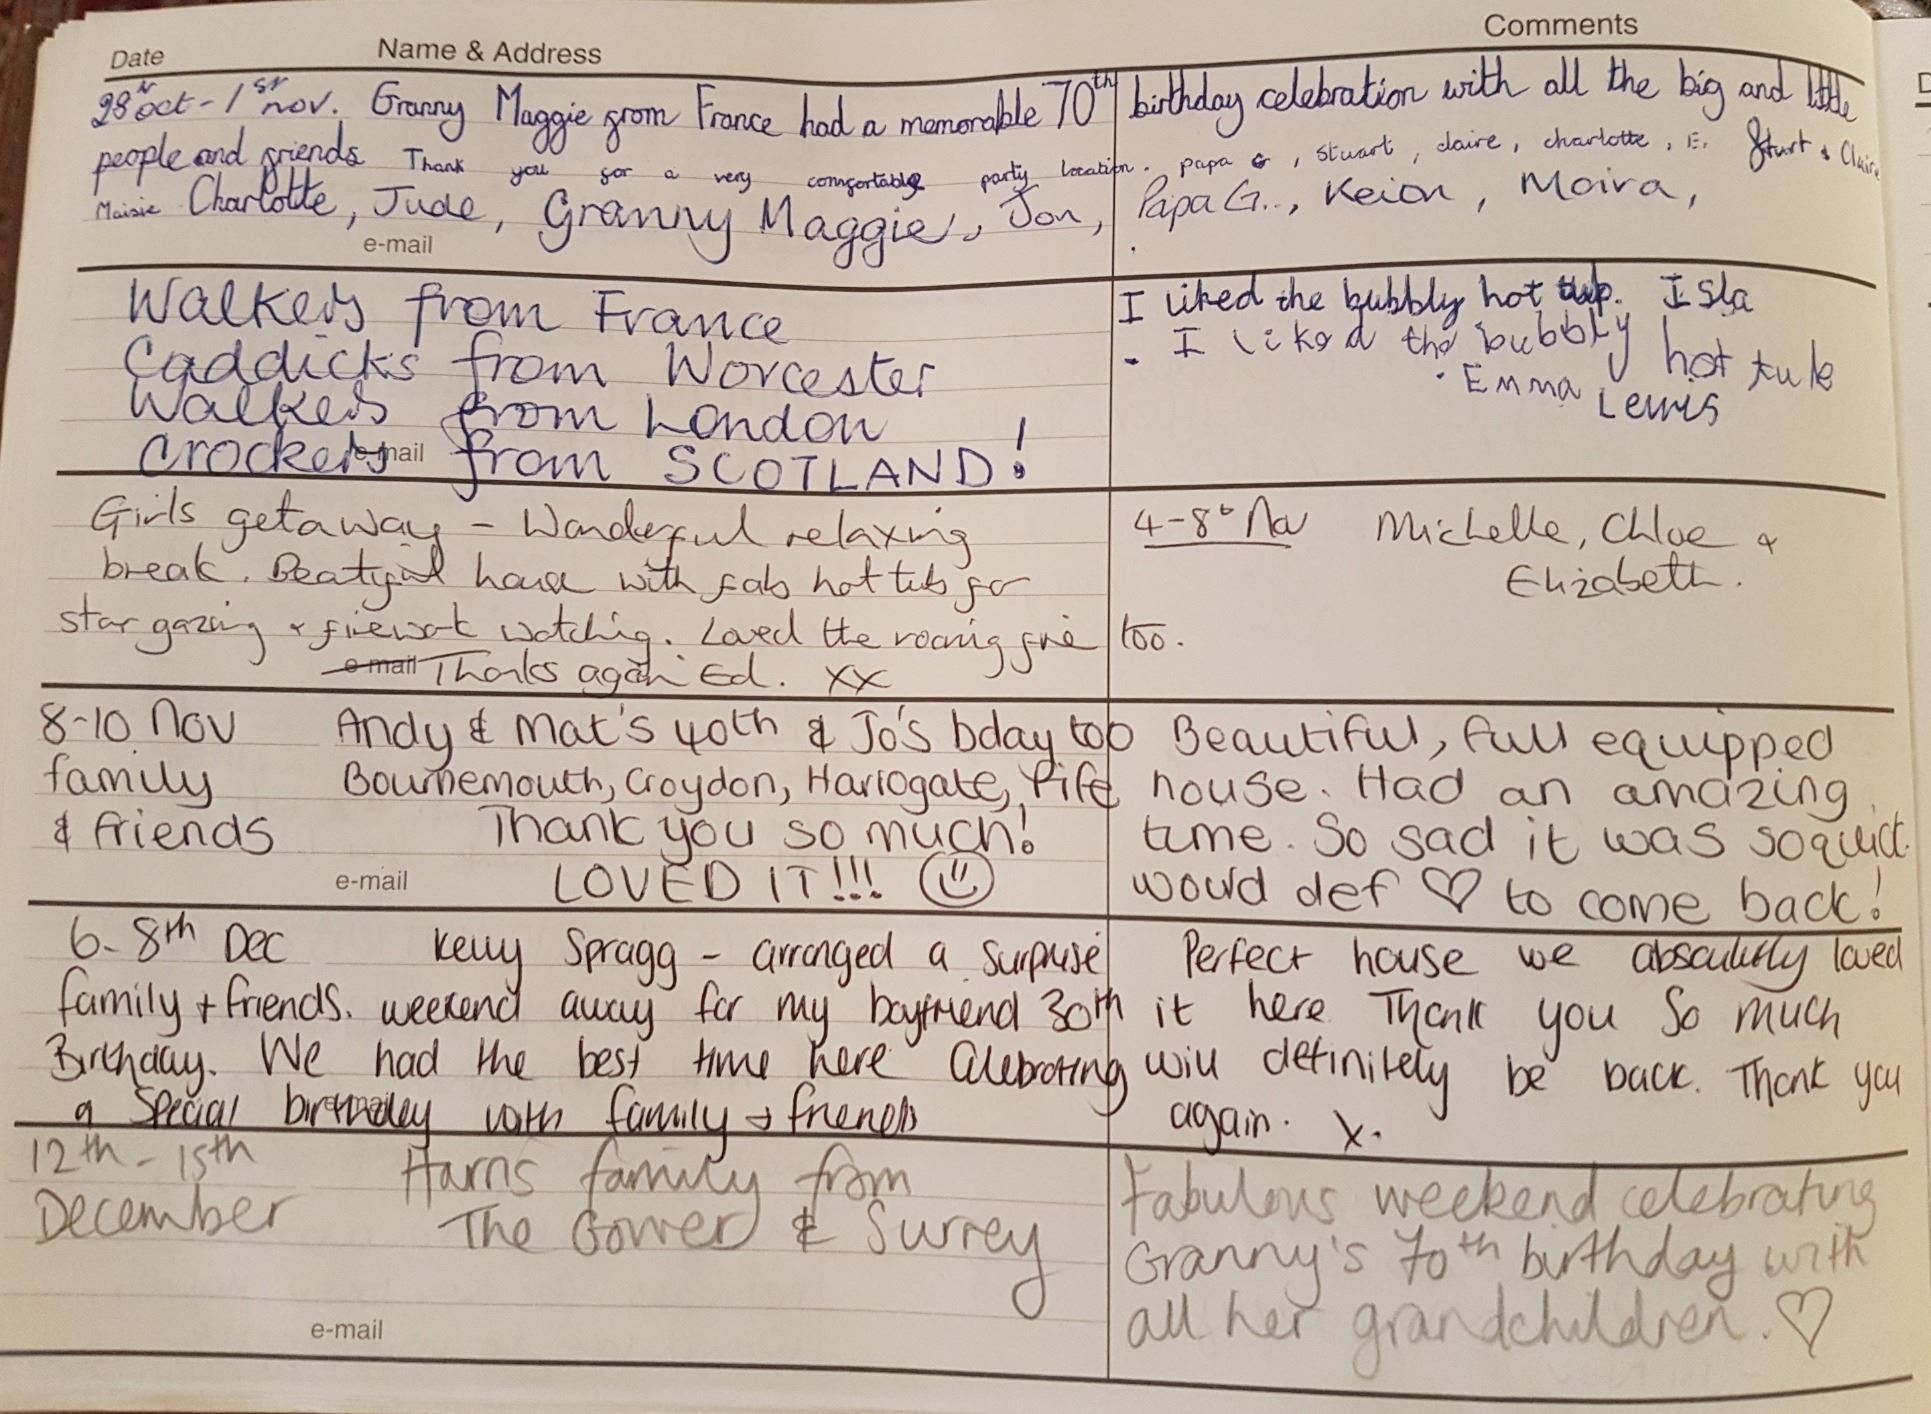 Date Name & Address Comments
28th oct - 1st nov. Granny Maggie from France had a memorable 70th birthday celebration with all the big and little
people and friends Thank you for a very comfortable party location. papa G, Stuart, claire, charlotte, E. Sturt & Claire
Maisie Charlotte, Jude, Granny Maggie, Jon, Papa G.., Keion, Moira,
e-mail
Walkers from France
Caddicks from Worcester
Walkers from London
Crockets from SCOTLAND!
e-mail
I liked the bubbly hot tub. Isla
- I liked the bubbly hot tub
· Emma Lewis
Girls getaway - Wonderful relaxing
break. Beatyful house with fab hot tub for
star gazing & firework watching. Loved the roaring fire too.
e-mail Thanks again Ed. xx
4-8th Nov Michelle, Chloe &
Elizabeth.
8-10 Nov Andy & Mat's 40th & Jo's bday too
family Bournemouth, Croydon, Harrogate, Fife
& friends Thank you so much!
e-mail LOVED IT!!!
Beautiful, full equipped
house. Had an amazing
time. So sad it was so quick.
would def ♡ to come back!
6-8th Dec Kelly Spragg - arranged a surprise
family + friends. weekend away for my boyfriend 30th
Birthday. We had the best time here Celebrating
a special birthday with family + friends
Perfect house we absolutely loved
it here Thank you so much
will definitely be back. Thank you
again. x.
12th - 15th Harris family from
December The Gower & Surrey
e-mail
Fabulous weekend celebrating
Granny's 70th birthday with
all her grandchildren. ♡